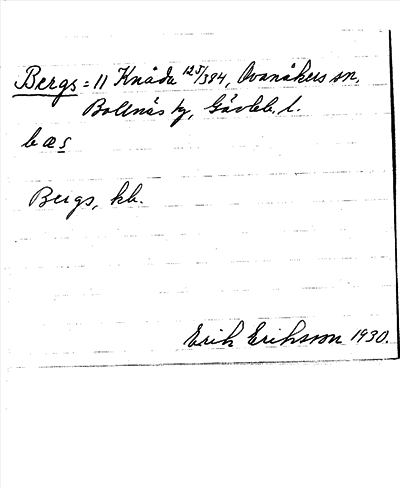 Bergs = 11 Knåda 125/384, Ovanåkers sn,
Bollnäs kg, Gävleb. l.
bæs
Bergs, kb.
Erik Eriksson 1930.